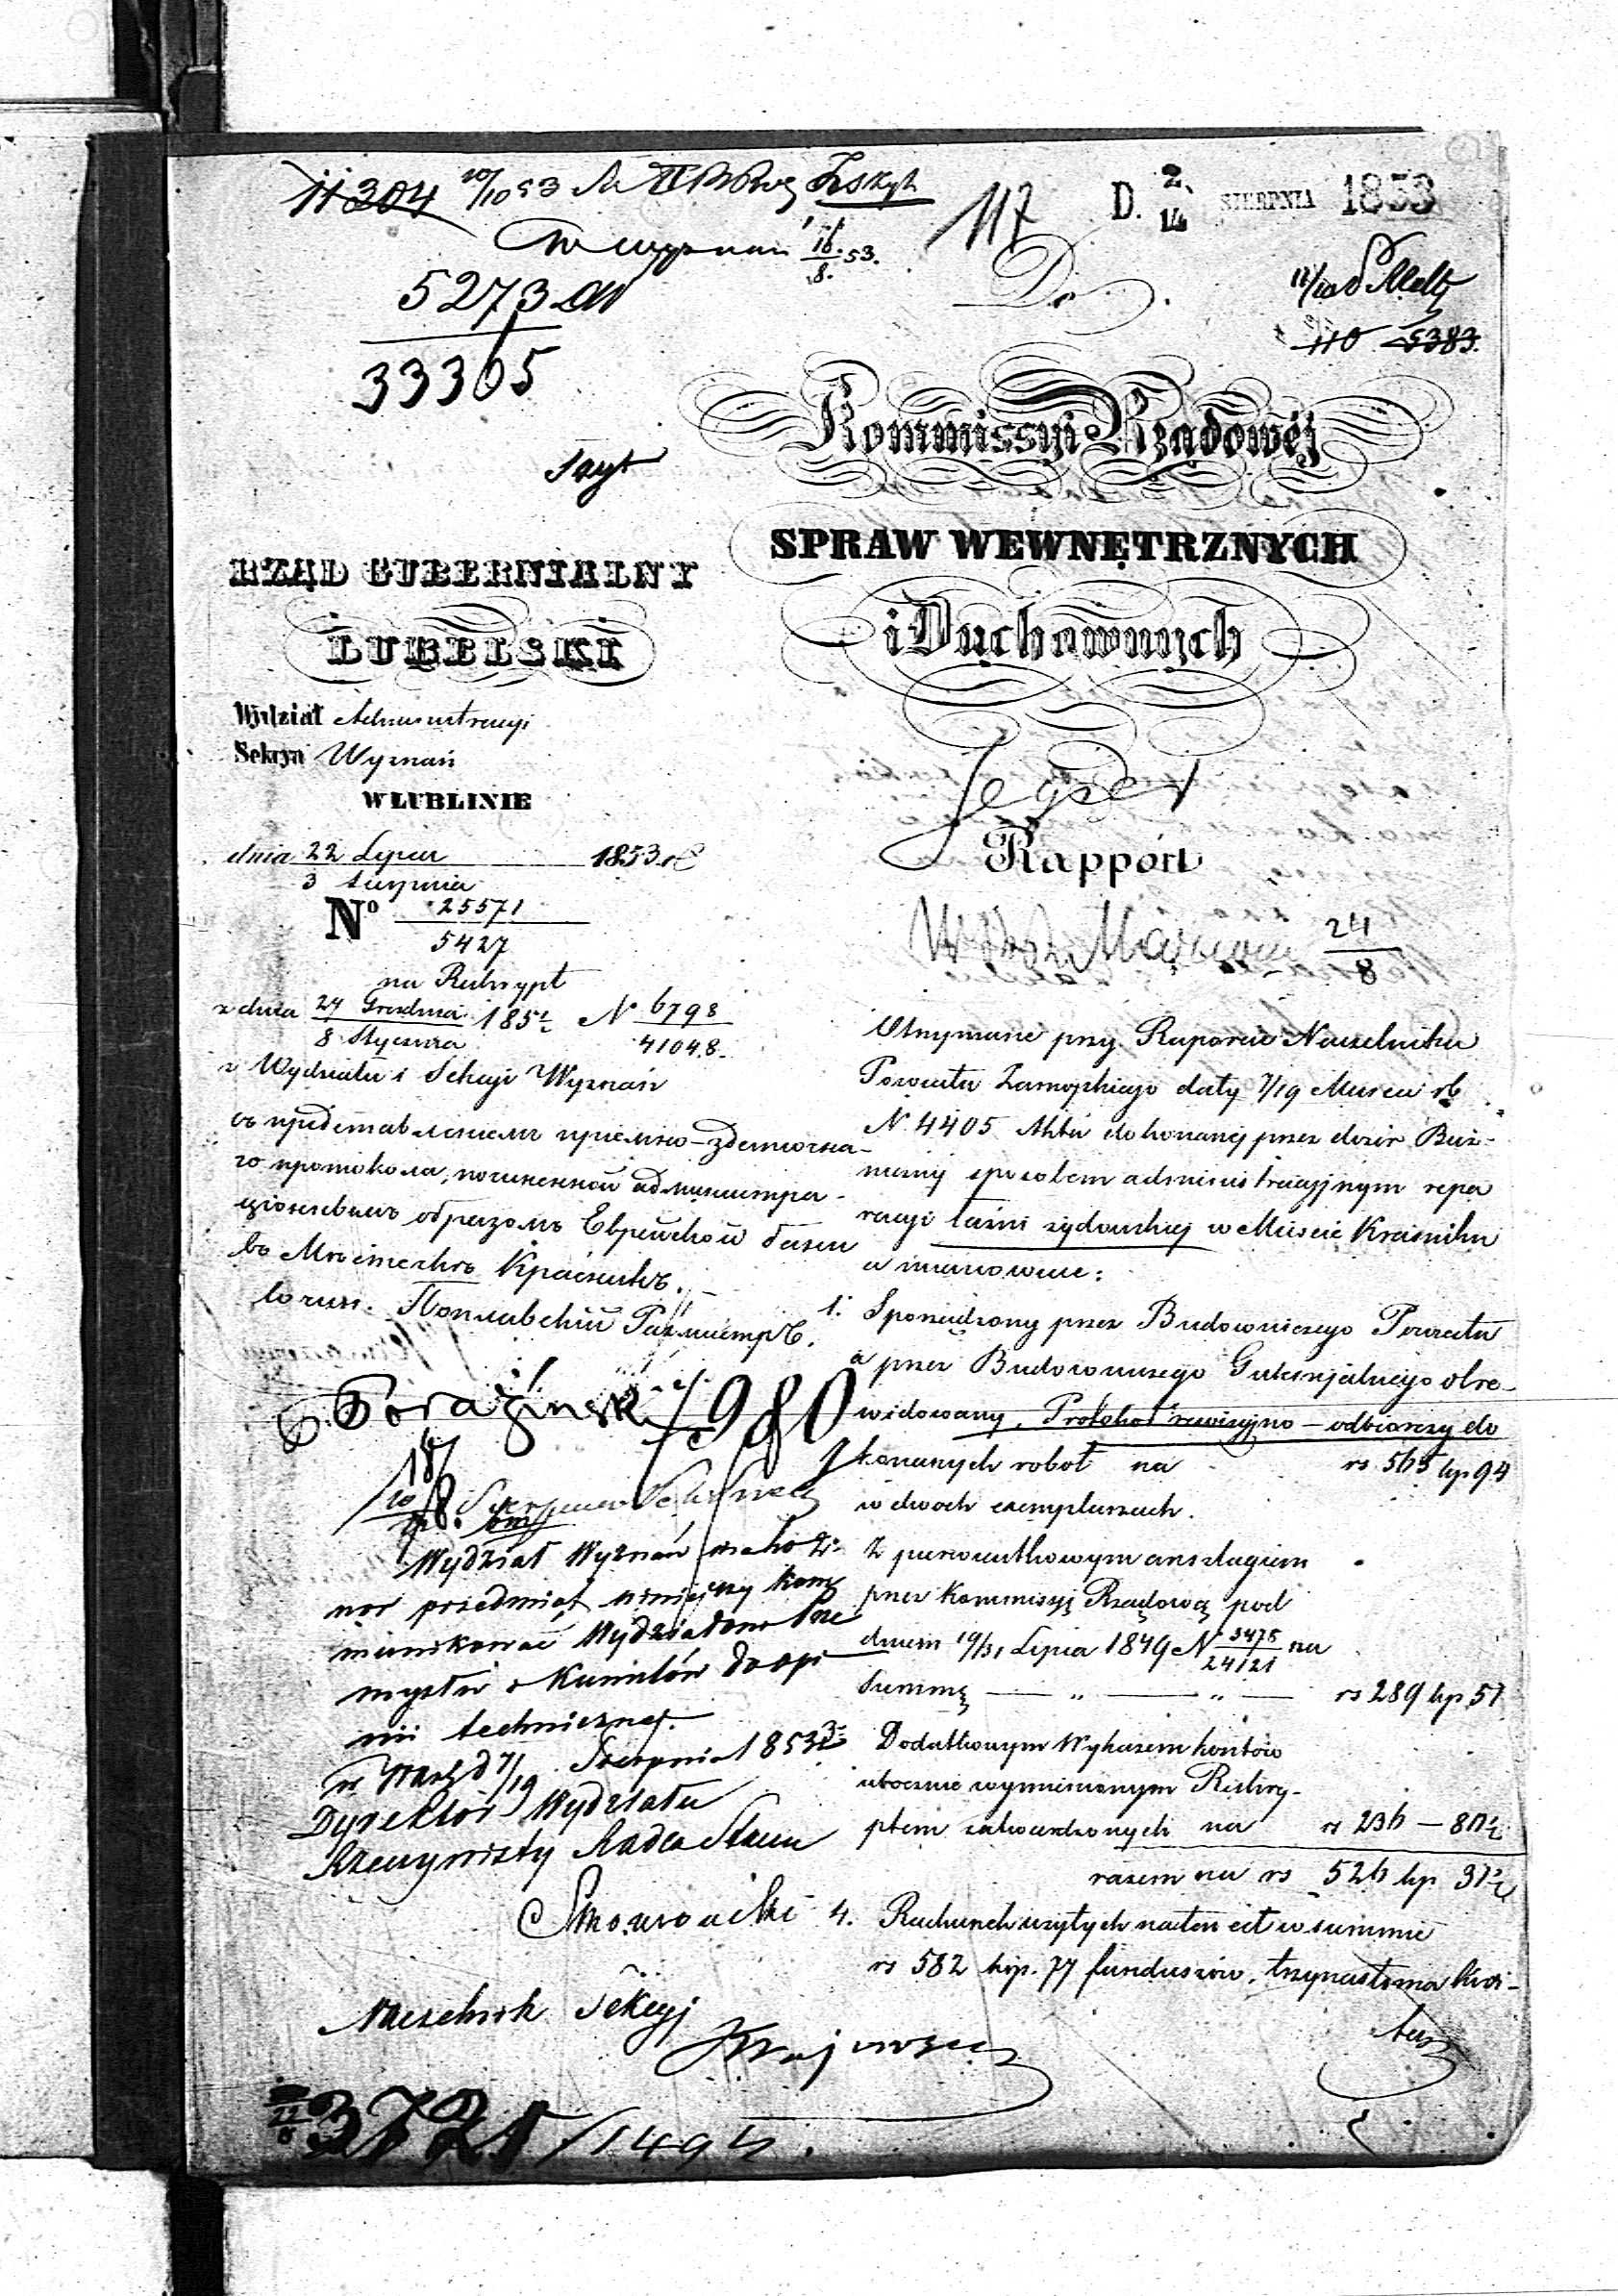 11304
117
D. 2/14 SIERPNIA 1853
w wyznań 16/8 53.
5273
33365
Do
110 5383.
Kommissyi Rządowéj
SPRAW WEWNĘTRZNYCH
i Duchownych
RZĄD GUBERNIALNY
LUBELSKI
Wydział Administracyi
Sekcya Wyznań
W LUBLINIE
dnia 22 Lipca 1853 r
3 Sierpnia
Nº 25571
5427
na Reskrypt
z dnia 27 Grudnia 185 N 6798
8 Stycznia 41048.
z Wydziału i Sekcyi Wyznań
Rapport
24/8
съ представленіемъ пріемно-
го протокола, починенной администра-
ціоннымъ образомъ Еврейской бани
въ Мѣстечкѣ Красникѣ.
Otrzymane przy Raporcie Naczelnika
Powiatu Zamoyskiego daty 7/19 Marca rb
N 4405 Akta dokonanej przez dozór Boż-
niczny sposobem administracyjnym repa
racyi łaźni żydowskiej w Mieście Kraśniku
a mianowicie:
1. Sporządzony przez Budowniczego Powiatu
a przez Budowniczego Gubernjalnego obre-
widowany, Protokół rewizyjno - odbiorczy do
konanych robot na rs 565 kp 94
w dwóch exemplarzach.
z pierwiastkowym anszlagiem
przez Kommissyę Rządową pod
dniem 19/31 Lipca 1849 N 3475/24121 na
Summę — „ — „ — rs 289 kp 57
Dodatkowym Wykazem kosztów
ubocznie wymienionym Reskry-
ptem zatwierdzonych na rs 236 — 80½
razem na rs 526 kp 37½
4. Rachunek użytych na ten cel w summie
rs 582 kop. 77 funduszów, trzynastoma kwi-
tami
980
Wydział Wyznań ma ho
nor przedmiot niniejszy kom
munikować Wydziałowi Prze
mysłu i Kunsztów do opi
nii technicznej.
w Warsz d 7/19 Sierpnia 1853 r
Dyrektor Wydziału
Rzeczywisty Radca Stanu
Naczelnik Sekcyj